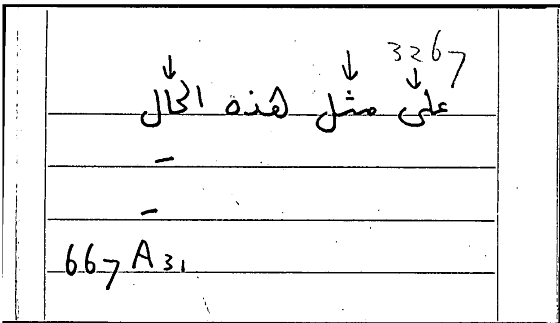 3267
على مثل هذه الحال
667 A31